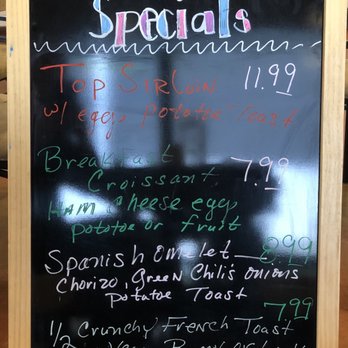 Specials
Top Sirloin 11.99
w/ eggs potatoe Toast
Breakfast 7.99
Croissant
Ham cheese eggs
potatoe or fruit
Spanish omelet 8.99
Chorizo, Green Chili's onions
potatoe Toast
7.99
1/2 Crunchy French Toast